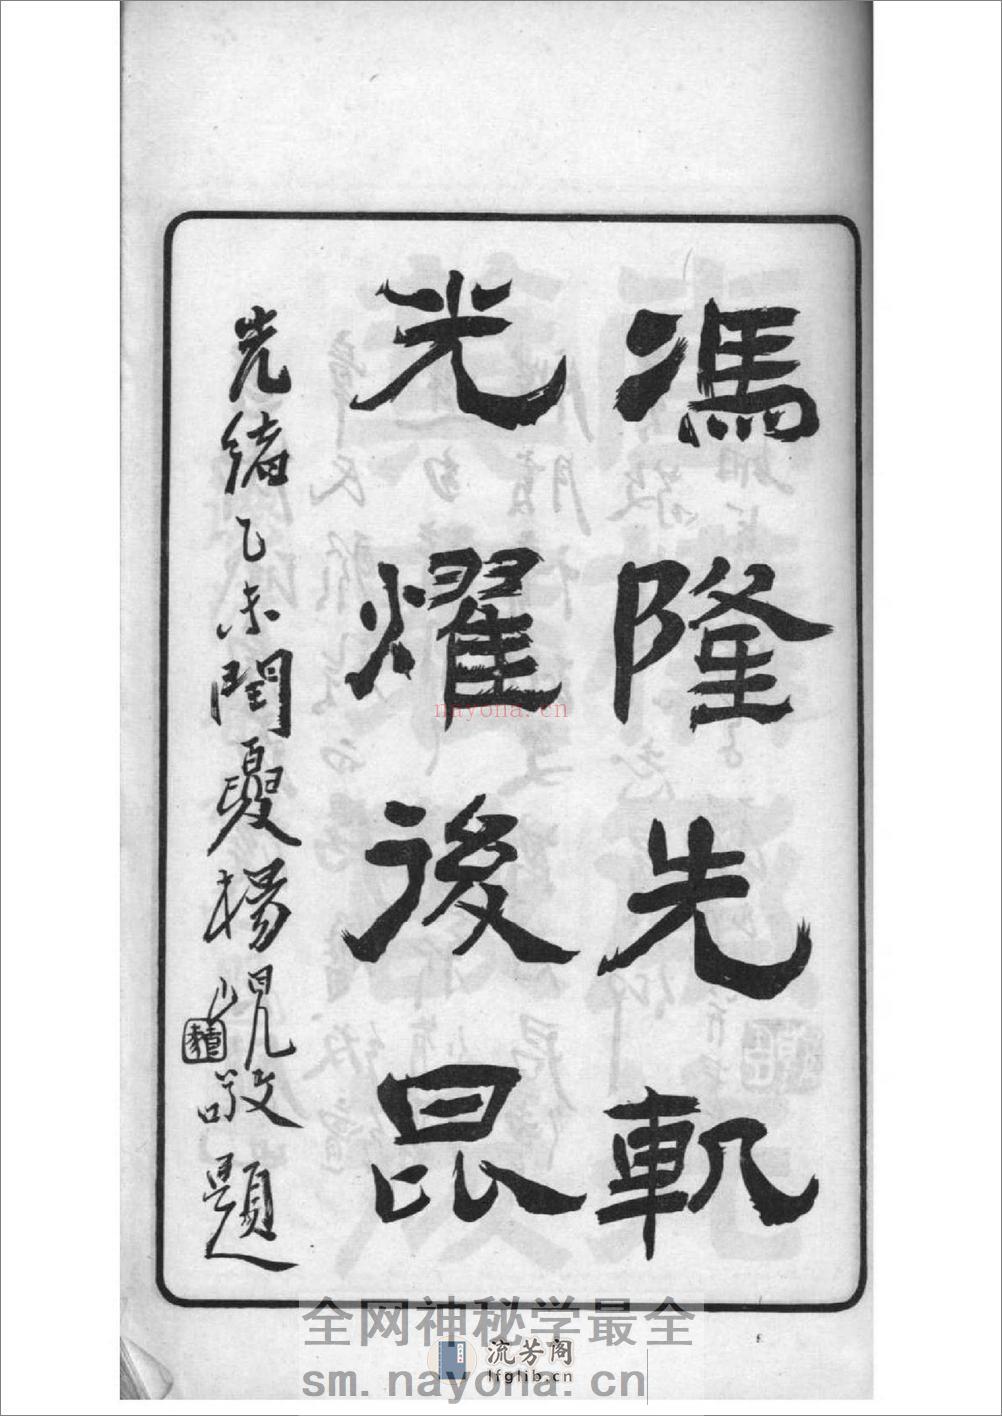 馮隆先軌
光燿後昆
光緒乙未閏夏楊峴敬題
nayona.cn
全网神秘学最全
流芳阁
lfglib.cn
sm.nayona.cn